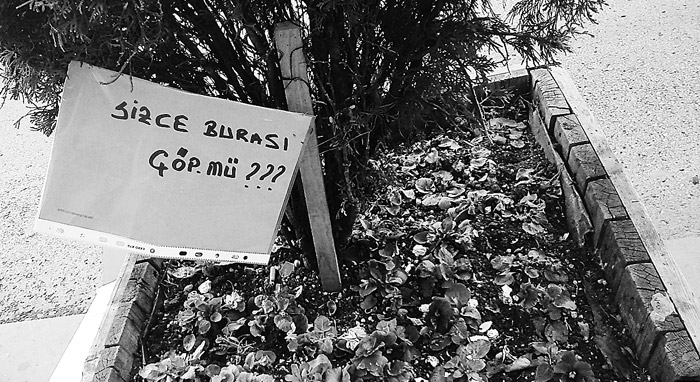 SİZCE BURASI
ÇÖP.MÜ ???